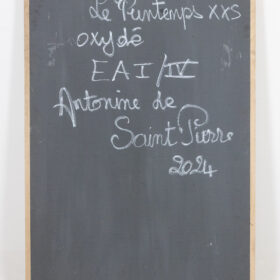 Le Printemps XXS
oxydé
EAI/IV
Antonine de
Saint Pierre
2024